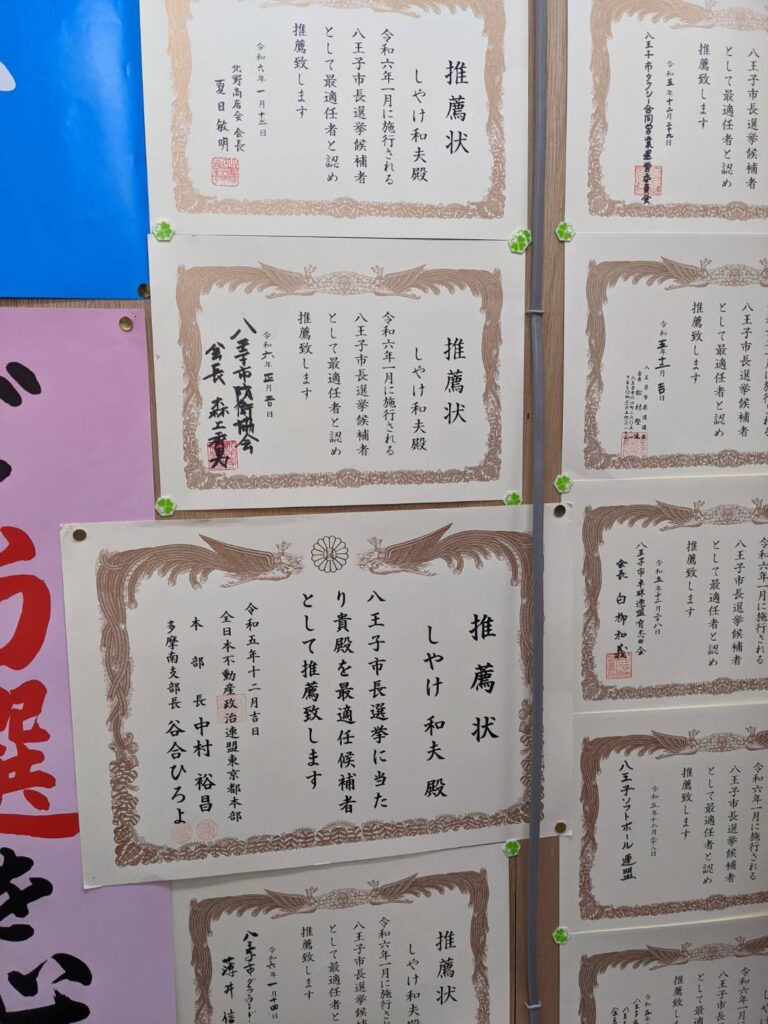 推薦状
しやけ和夫殿
令和六年一月に施行される
八王子市長選挙候補者
として最適任者と認め
推薦致します
令和六年一月十二日
北野商店会 会長
夏目敏明
推薦状
しやけ和夫殿
令和六年一月に施行される
八王子市長選挙候補者
として最適任者と認め
推薦致します
令和六年正月吉日
八王子市防衛協会
会長 森上
推薦状
しやけ 和夫 殿
八王子市長選挙に当た
り貴殿を最適任候補者
として推薦致します
令和五年十二月吉日
全日本不動産政治連盟東京都本部
本部長 中村 裕昌
多摩南支部長 谷合ひろよ
推薦状
しやけ和夫
令和六年一月に施行され
八王子市長選挙候補
として最適任者と
推薦致します
令和六年一月十四日
八王子市グラウンド・
薄井信
八王子市長選挙候補者
として最適任者と認め
推薦致します
令和五年十二月二九日
八王子市タクシー合同営業運営委員会
八王子市長選挙候補者
として最適任者と認め
推薦致します
令和五年十二月吉日
会長 松村
令和六年一月に施行される
八王子市長選挙候補者
として最適任者と認め
推薦致します
令和五年十二月二八日
八王子市卓球連盟有志の会
会長 白柳和義
令和六年一月に施行される
八王子市長選挙候補者
として最適任者と認め
推薦致します
令和五年十二月二八日
八王子ソフトボール連盟
八王子市長選挙
として最適任者
推薦致します
令和五年
必
を
選